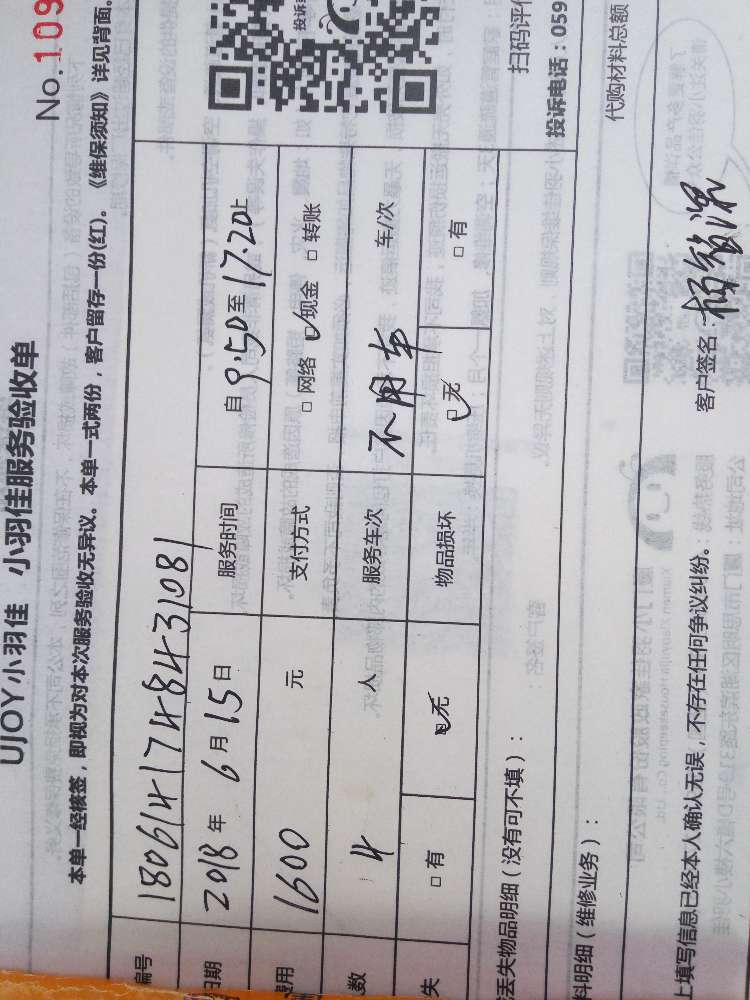 No.109
UJOY小羽佳 小羽佳服务验收单
本单一经核签，即视为对本次服务验收无异议。本单一式两份，客户留存一份(红)。《维保须知》详见背面。
编号 180614174843 1081
日期 2018年6月15日 服务时间 自9:50至17:20止
费用 1600元 支付方式 □网络 ☑现金 □转账
数 4人 服务车次 不用车 车/次
失 □有 ☑无 物品损坏 ☑无 □有
丢失物品明细（没有可不填）：
扫码评价
投诉电话：059
料明细（维修业务）：
代购材料总额
上填写信息已经本人确认无误，不存在任何争议纠纷。
客户签名：